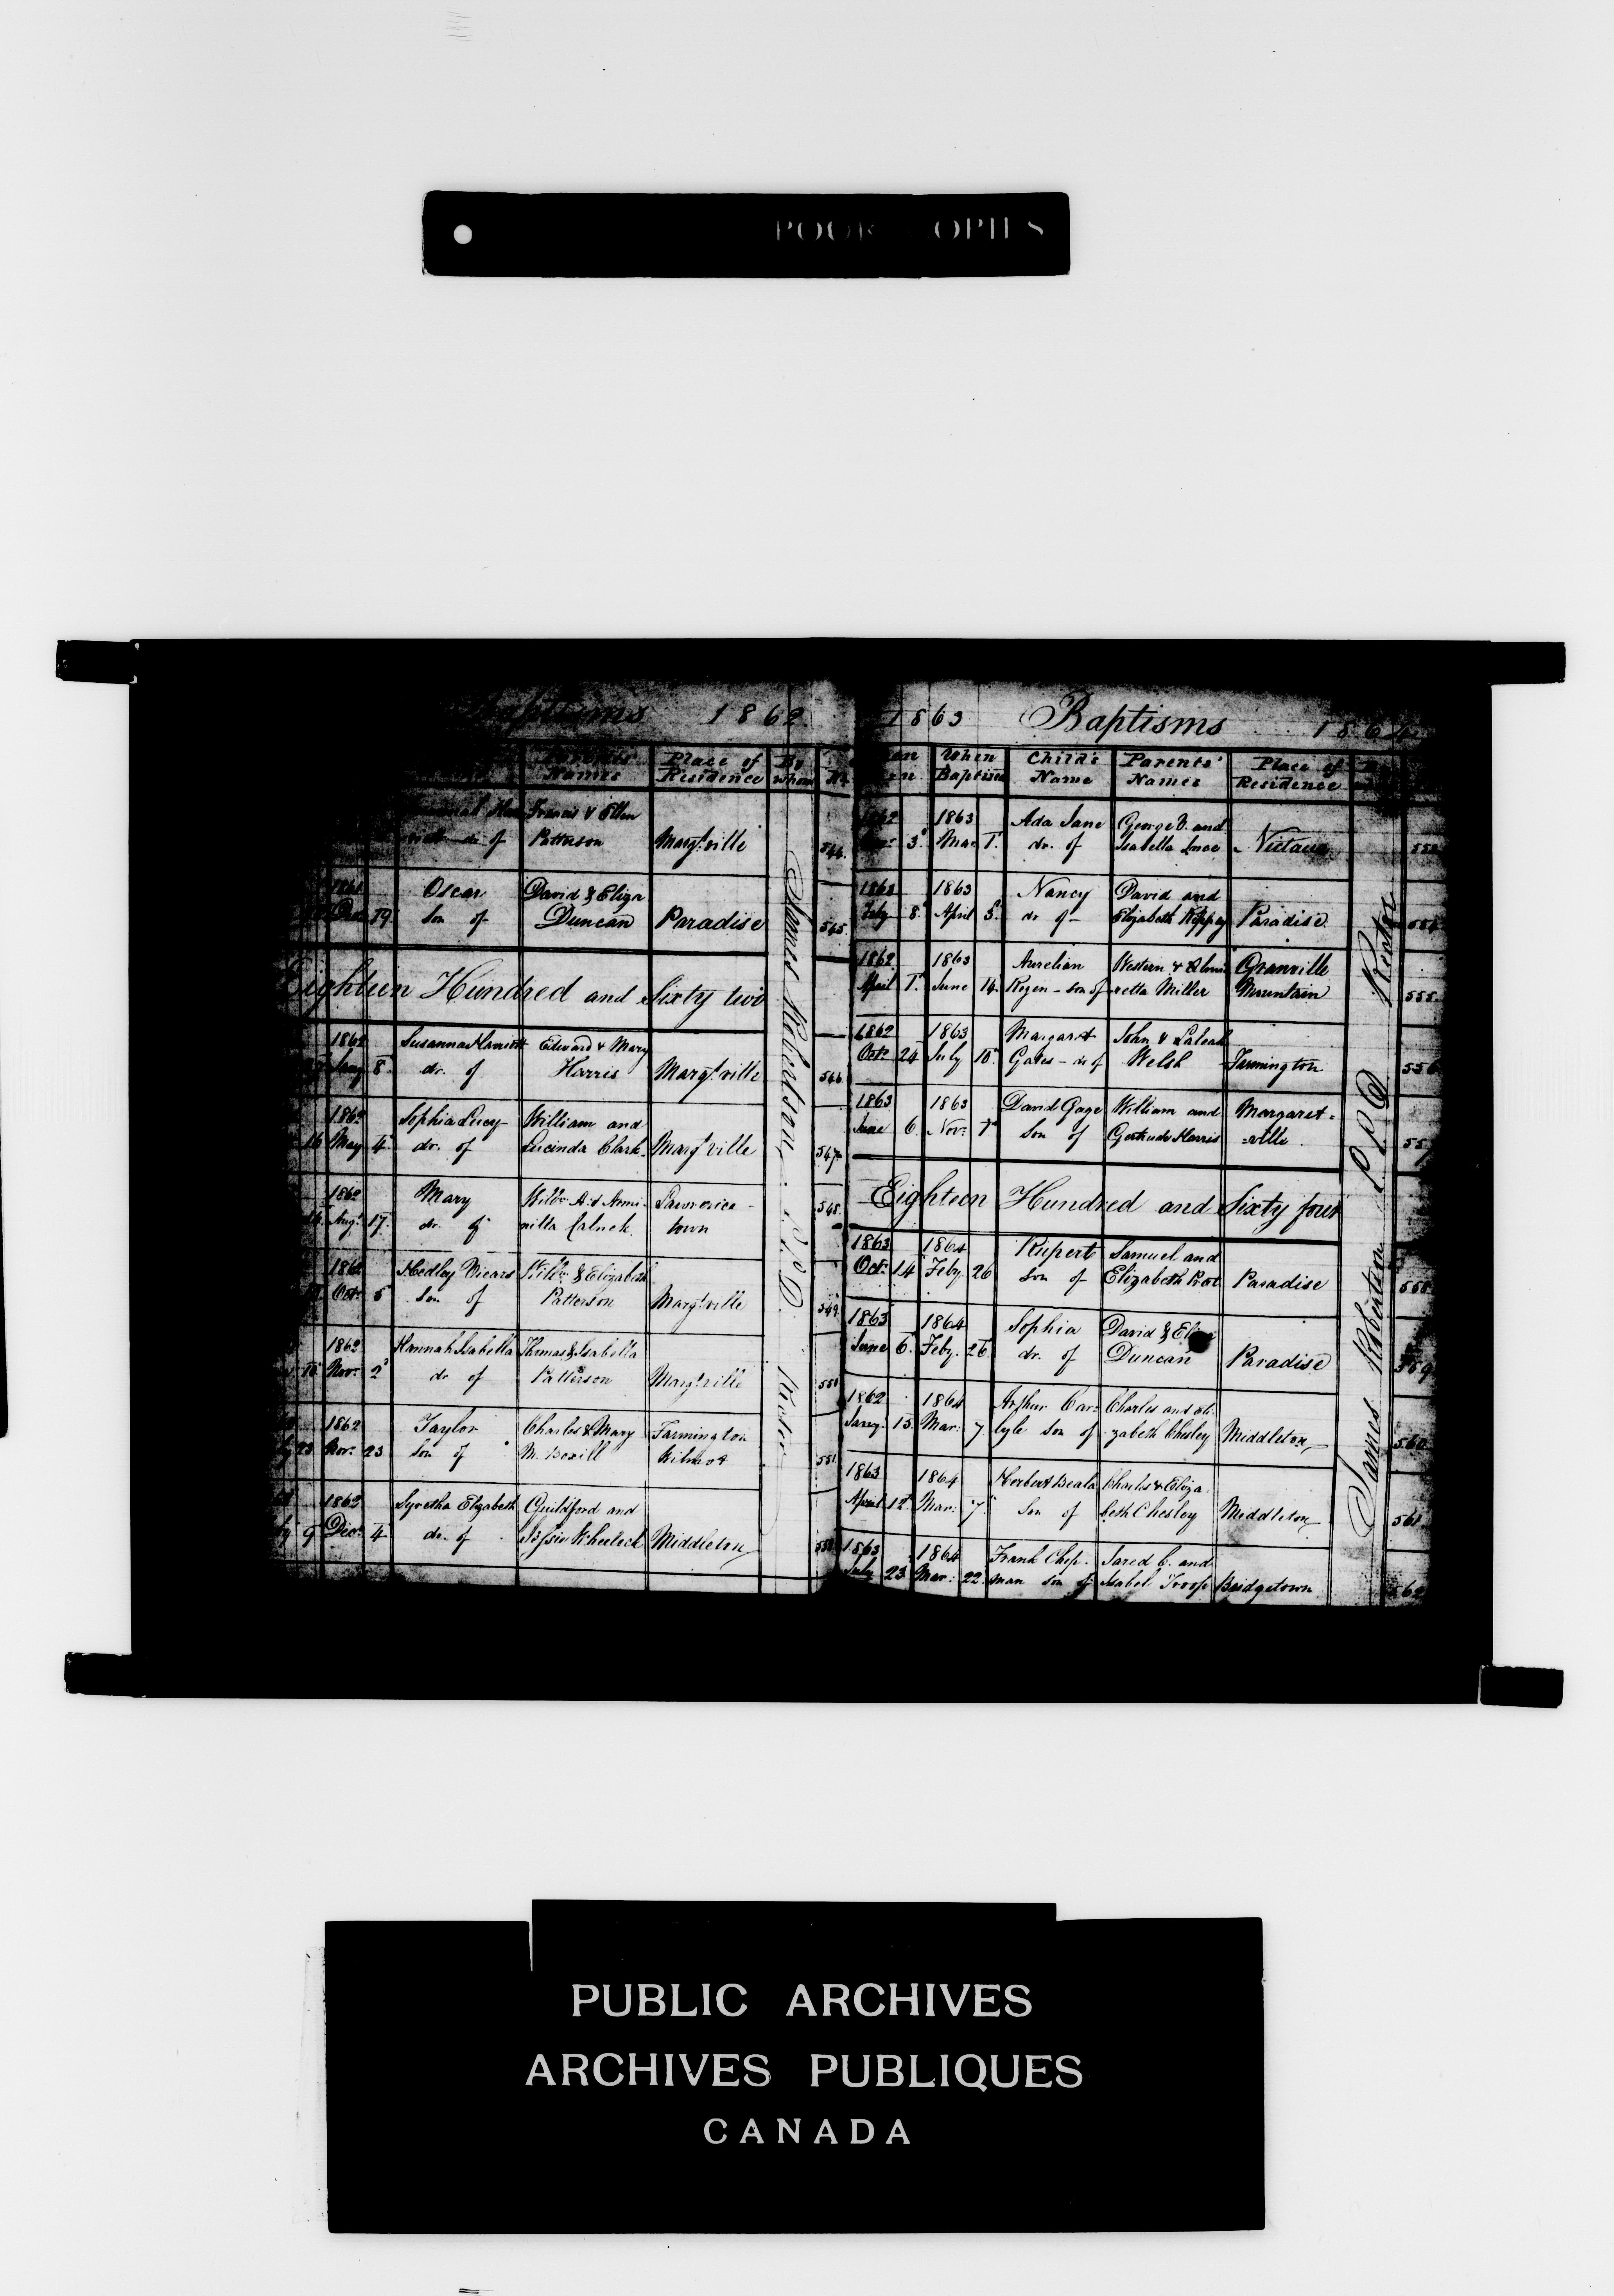 POOR COPIES
Baptisms 1862
Parents' Names Place of Residence By whom No.
Francis & Ellen
of Patterson Margt.ville 544.
1861 Oscar David & Eliza
19. son of Duncan Paradise 545.
Eighteen Hundred and Sixty two
1862 Susanna Harriett Edward & Mary
Jany 8. dr. of Harris Margt.ville 546
1862 Sophia Lucy William and
16 May 4. dr. of Lucinda Clark. Margt ville 547.
1862 Mary
Augt. 17. dr. of town 548.
1862 Hedley Vicars Willm. & Elizabeth
Oct. 5 son of Patterson Margt.ville 549.
1862 Hannah Isabella Thomas & Isabella
Nov. 2 dr. of Patterson Margt.ville 550
1862 Taylor Charles & Mary Farmington
23 Nov. 23 son of M. Wilmot 551.
1862 Elizabeth Guildford and
9 Dec. 4. dr. of Wheelock Middleton 552
James Robertson L.L.D. Rector
1863 Baptisms 1864
When Baptism Child's Name Parents' Names Place of Residence
1862 1863 Ada Jane George and
3. Mar. 1. dr. of Isabella Nictaux
1863 1863 Nancy David and
Feby 8. April 5. dr of Elizabeth Paradise 554.
1862 1863 Aurelian Western & Granville
April 1. June 14. son of retta Miller Mountain 555.
1862 1863 Margaret John &
Oct. 24 July 10. Gates – dr of Welsh Farmington 556
1863 1863 David Gage William and Margaret=
June 6. Nov. 7 son of Gertrude Harris =ville.
Eighteen Hundred and Sixty four
1863 1864 Rupert Samuel and
Oct. 14 Feby. 26 son of Elizabeth Paradise 558.
1863 1864 Sophia David & Eliza
June 6. Feby. 26 dr. of Duncan Paradise 559
1862 1864 Arthur Car= Charles and Eli=
Jany. 15. Mar. 7 lyle son of zabeth Chesley Middleton 560
1863 1864 Herbert Charles & Eliza
April 12 Mar. 7. son of beth Chesley Middleton 561
1863 1864 Frank Chip. Jared C. and
July 23 Mar. 22. man son of Isabel Troop Bridgetown 562
James Robertson L.L.D. Rector
PUBLIC ARCHIVES
ARCHIVES PUBLIQUES
CANADA